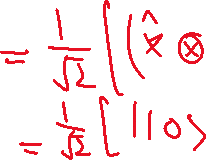 = 1/√2 [ ( x̂ ⊗
= 1/√2 [ |10>